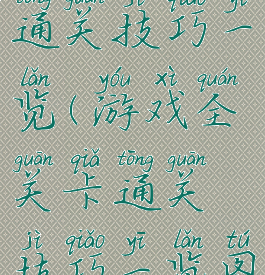 tōng guān jì qiǎo yī
通关技巧一
lǎn yóu xì quán
览(游戏全
guān qiǎ tōng guān
关卡通关
jì qiǎo yī lǎn tú
技巧一览图